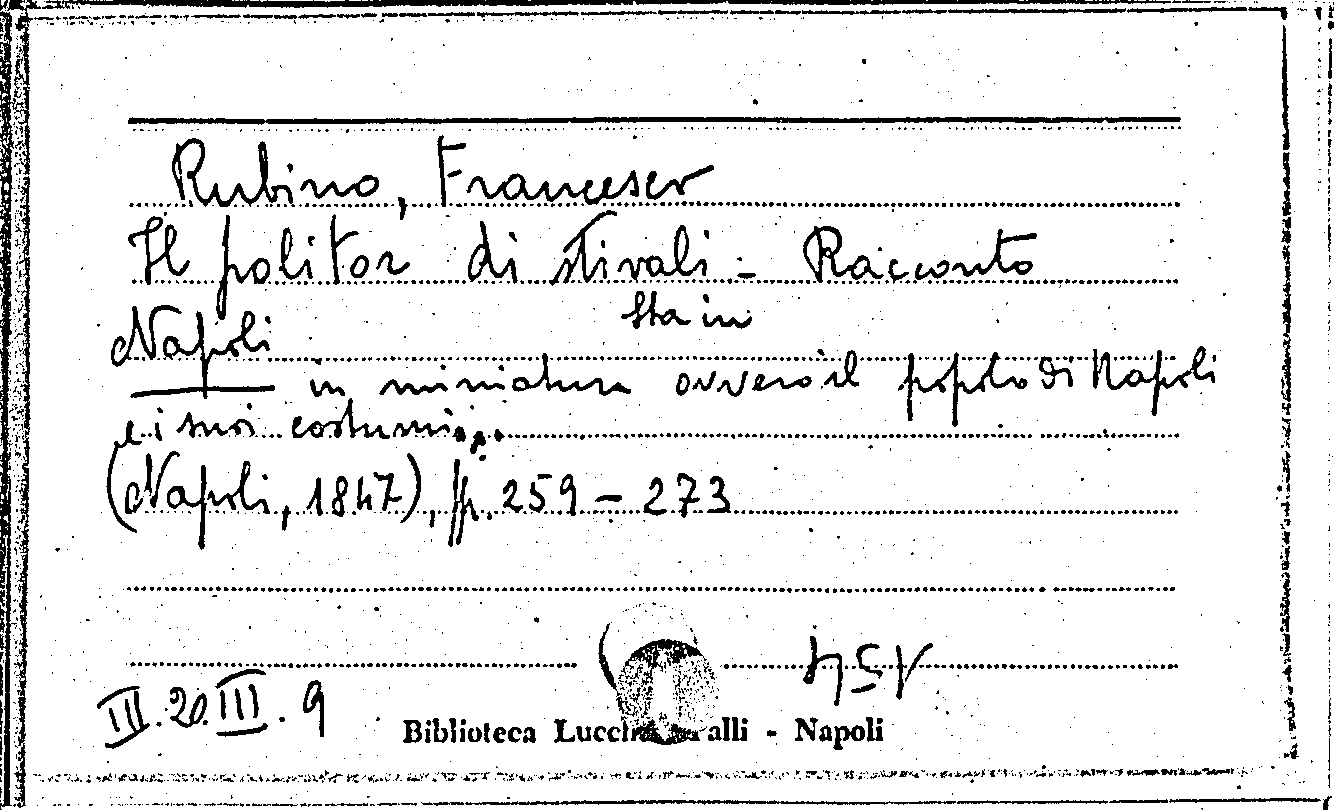 Rubino, Francesco
Il politor di stivali - Racconto
Sta in
Napoli
in miniatura ovvero il popolo di Napoli
e i suoi costumi...
(Napoli, 1847), pp. 259 - 273
III. 20. III. 9
Biblioteca Lucch alli - Napoli